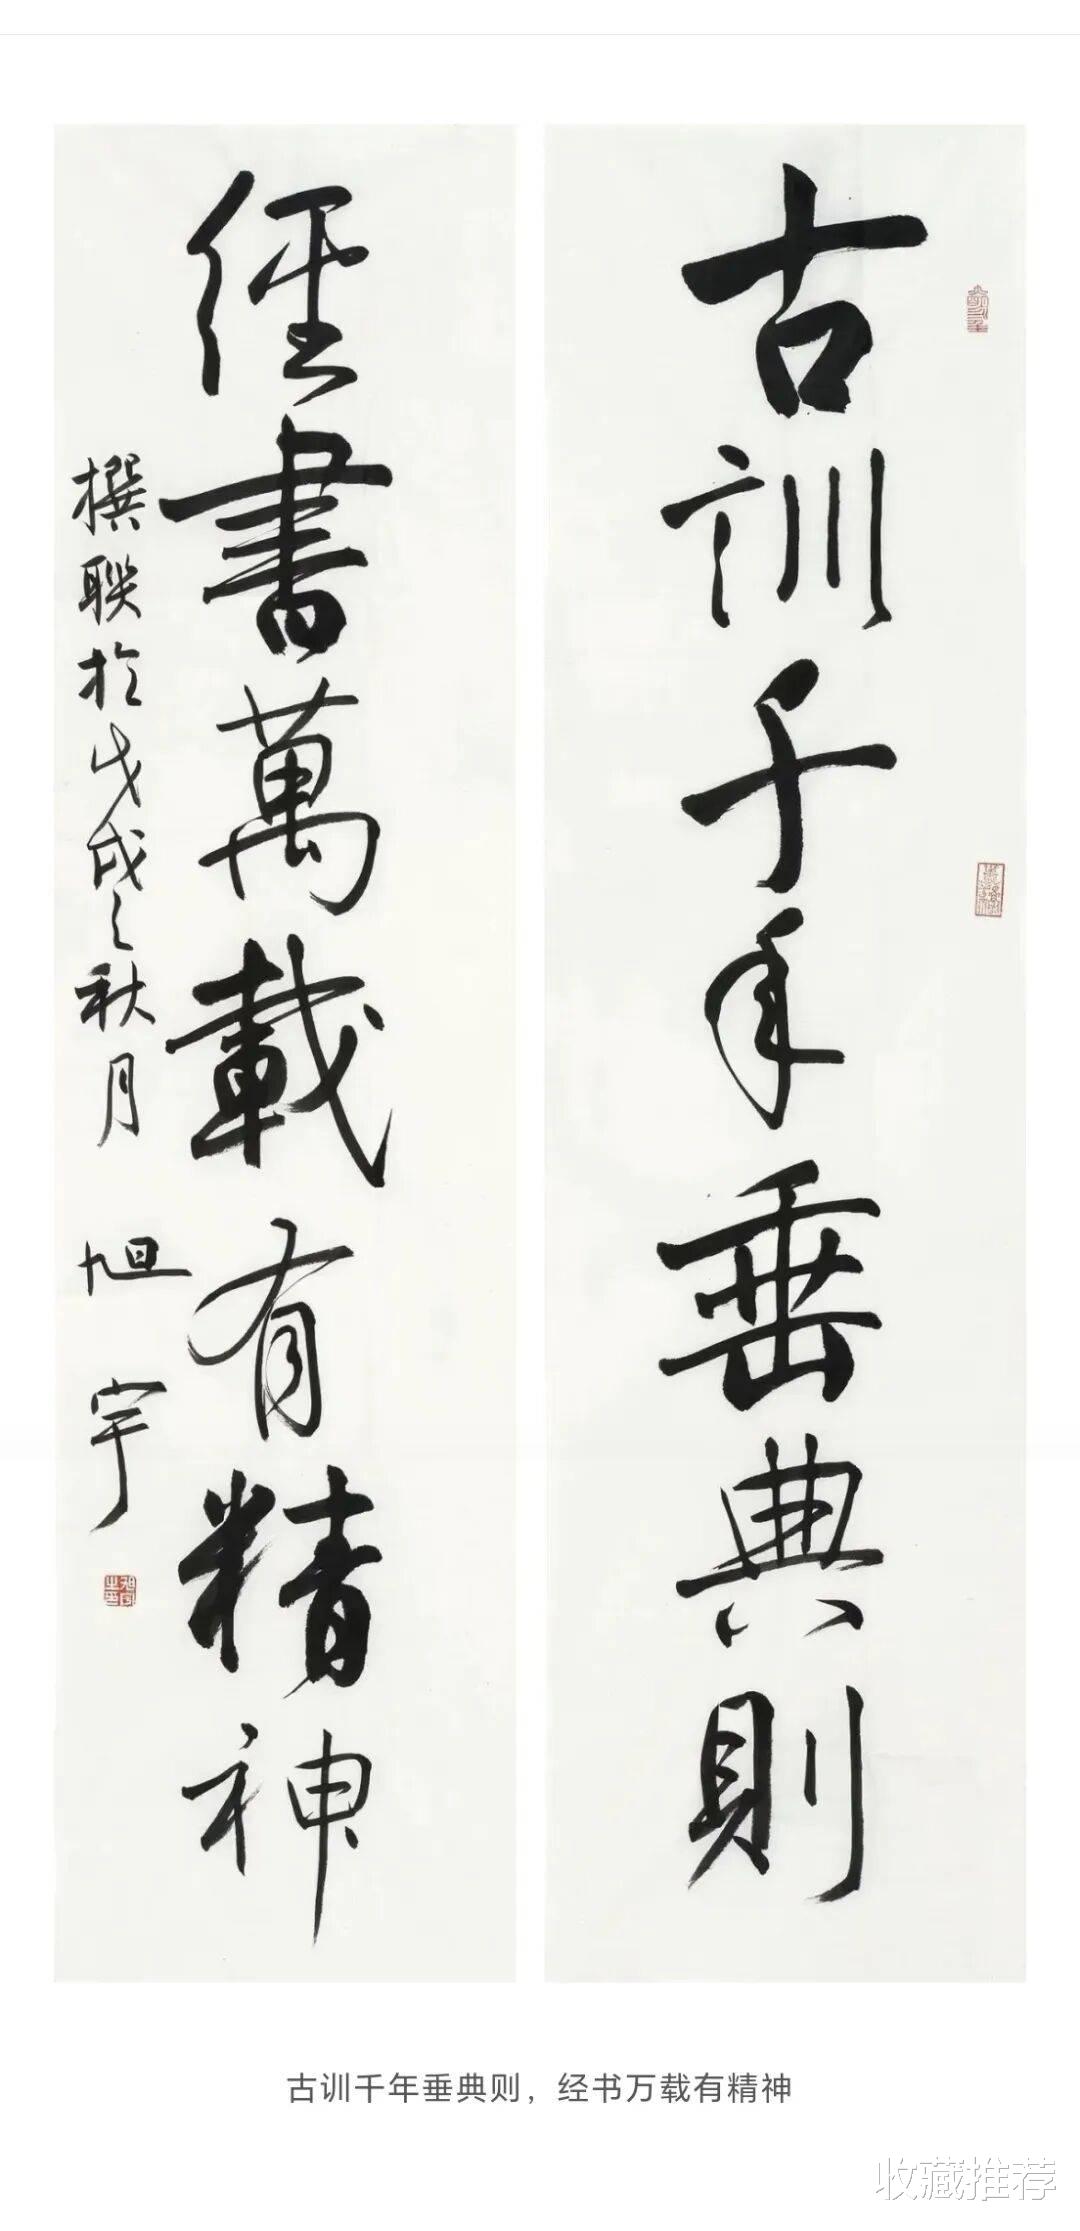 古訓千年垂典則
經書萬載有精神
撰聯於戊戌之秋月 旭宇
古训千年垂典则，经书万载有精神
收藏推荐